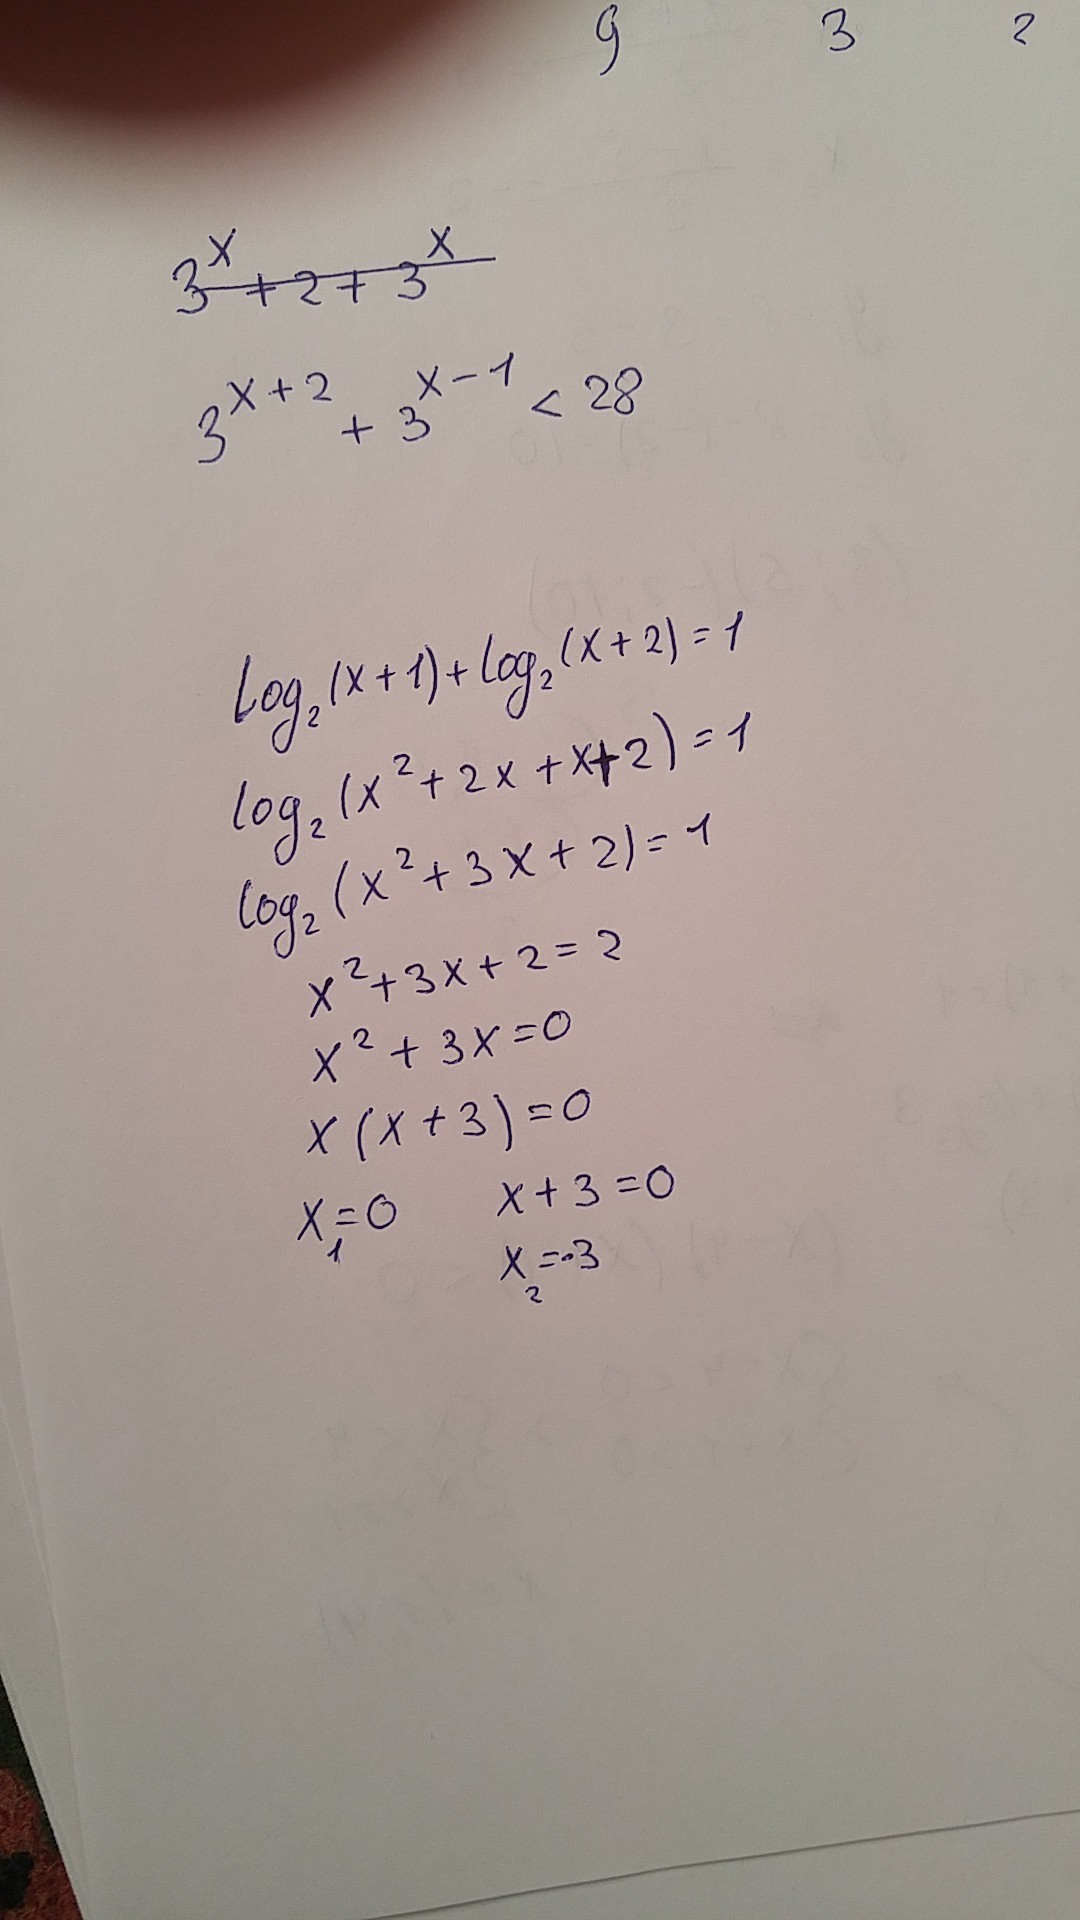 9 3 2
3^x + 2 + 3^x
3^{x+2} + 3^{x-1} < 28
log₂(x+1) + log₂(x+2) = 1
log₂(x² + 2x + x + 2) = 1
log₂(x² + 3x + 2) = 1
x² + 3x + 2 = 2
x² + 3x = 0
x(x + 3) = 0
x₁ = 0 x + 3 = 0
x₂ = -3